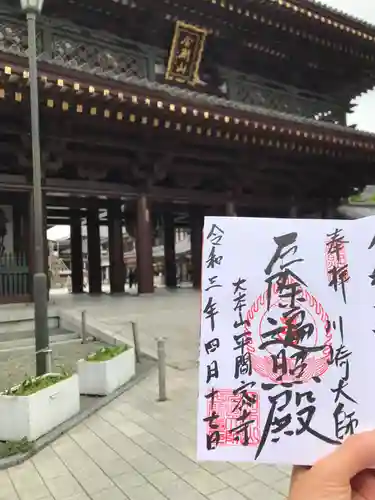 金剛山
奉拝 川崎大師
厄除遍照殿
大本山 平間寺
令和三年四月十七日